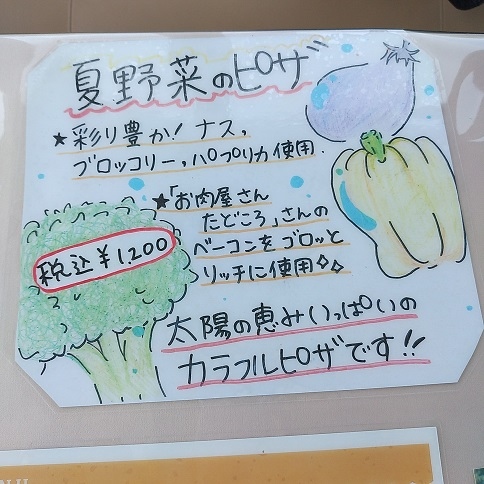 夏野菜のピザ
★彩り豊か！ナス，
ブロッコリー，パプリカ使用．
★「お肉屋さん
たどころ」さんの
ベーコンをゴロッと
リッチに使用✧✧
税込¥1200
太陽の恵みいっぱいの
カラフルピザです!!